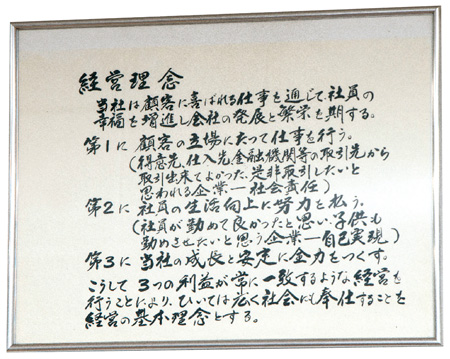 経営理念
当社は顧客に喜ばれる仕事を通じて、社員の
幸福を増進し会社の発展と繁栄を期する。
第1に 顧客の立場にたって仕事を行う。
(得意先、仕入先、金融機関等の取引先から
取引出来てよかった、是非取引したいと
思われる企業―社会責任)
第2に 社員の生活向上に努力を払う。
(社員が勤めて良かったと思い、子供も
勤めさせたいと思う企業―自己実現)
第3に 当社の成長と安定に全力をつくす。
こうして3つの利益が常に一致するような経営を
行うことにより、ひいては広く社会にも奉仕することを
経営の基本理念とする。